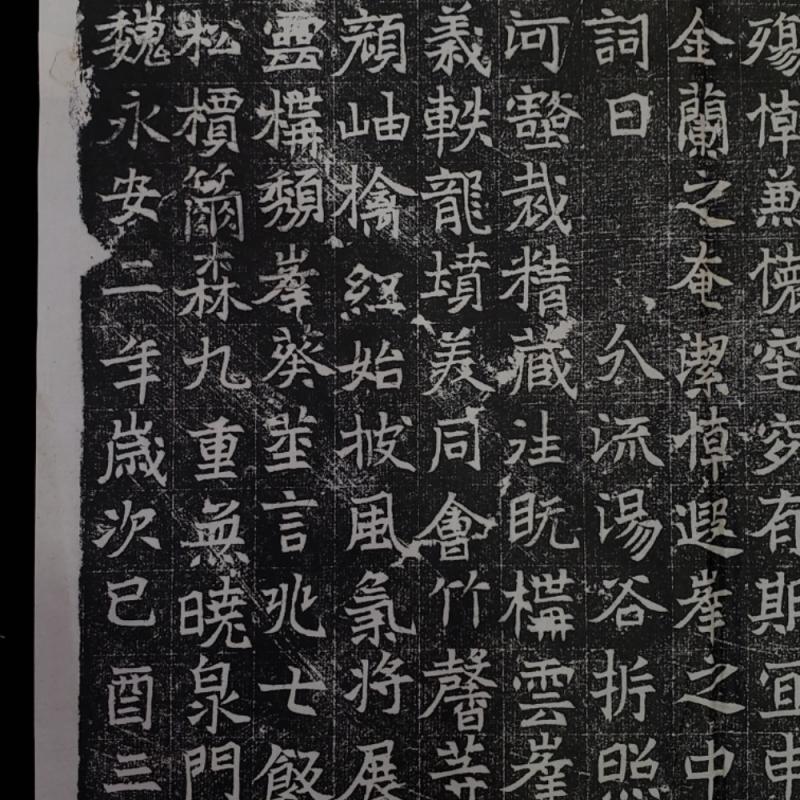 殤悼兼懷窀穸有期宜申
金蘭之奄潔悼遐峯之中
詞曰 分流湯谷折照
河壑裁精藏注既構雲峯
義軼龍墳美同會竹馨芸
岫擒紅始披風氣将展
雲構頹峯葵言兆七
松檟森九重無曉泉門
魏永安二年歲次己酉三